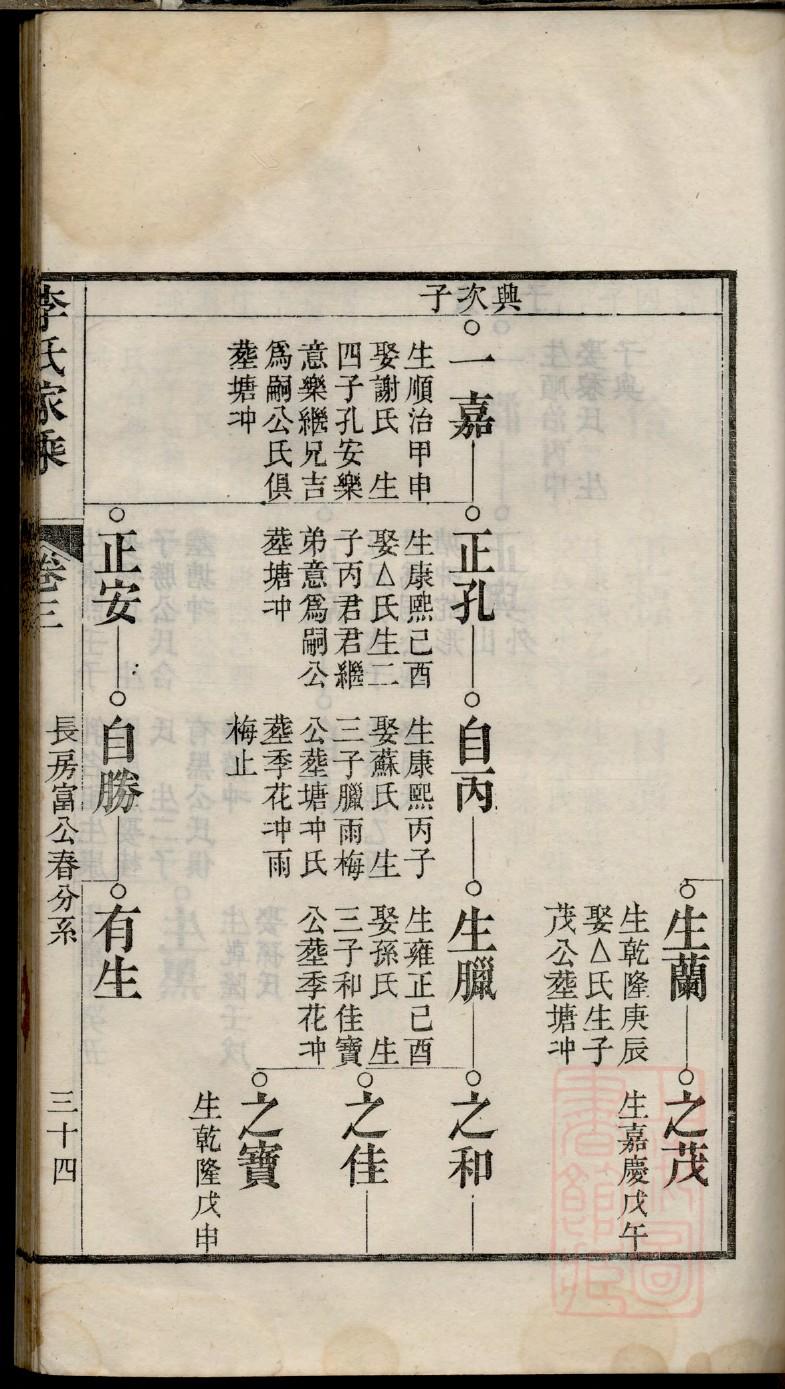 生蘭
生乾隆庚辰
娶△氏生子
茂公塟塘冲
之茂
生嘉慶戊午
興次子
一嘉
生順治甲申
娶謝氏 生
四子孔安樂
意樂繼兄吉
爲嗣公氏俱
塟塘冲
正孔
生康熙己酉
娶△氏生二
子丙君君繼
弟意爲嗣公
塟塘冲
自丙
生康熙丙子
娶蘇氏 生
三子臘雨梅
公塟塘冲氏
塟季花冲雨
梅止
生臘
生雍正己酉
娶孫氏 生
三子和佳寶
公塟季花冲
之和
之佳
之寶
生乾隆戊申
正安
自勝
有生
李氏家乘
卷三
長房富公春分系
三十四